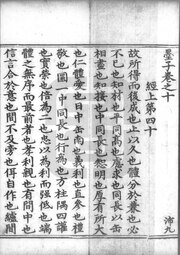 墨子卷之十 沛九
經上第四十
故所得而後成也止以久也體分於兼也必
不已也知材也平同高也慮求也同長以缶
相盡也知接也中同長也恕明也厚有所大
也仁體愛也日中缶南也義利也直參也禮
敬也圜一中同長也行為也方柱隅四讙
也實榮也倍為二也忠以為利而強低也端
體之無序而最前者也孝利親也有間中也
信言合於意也間不及旁也佴自作也纑間